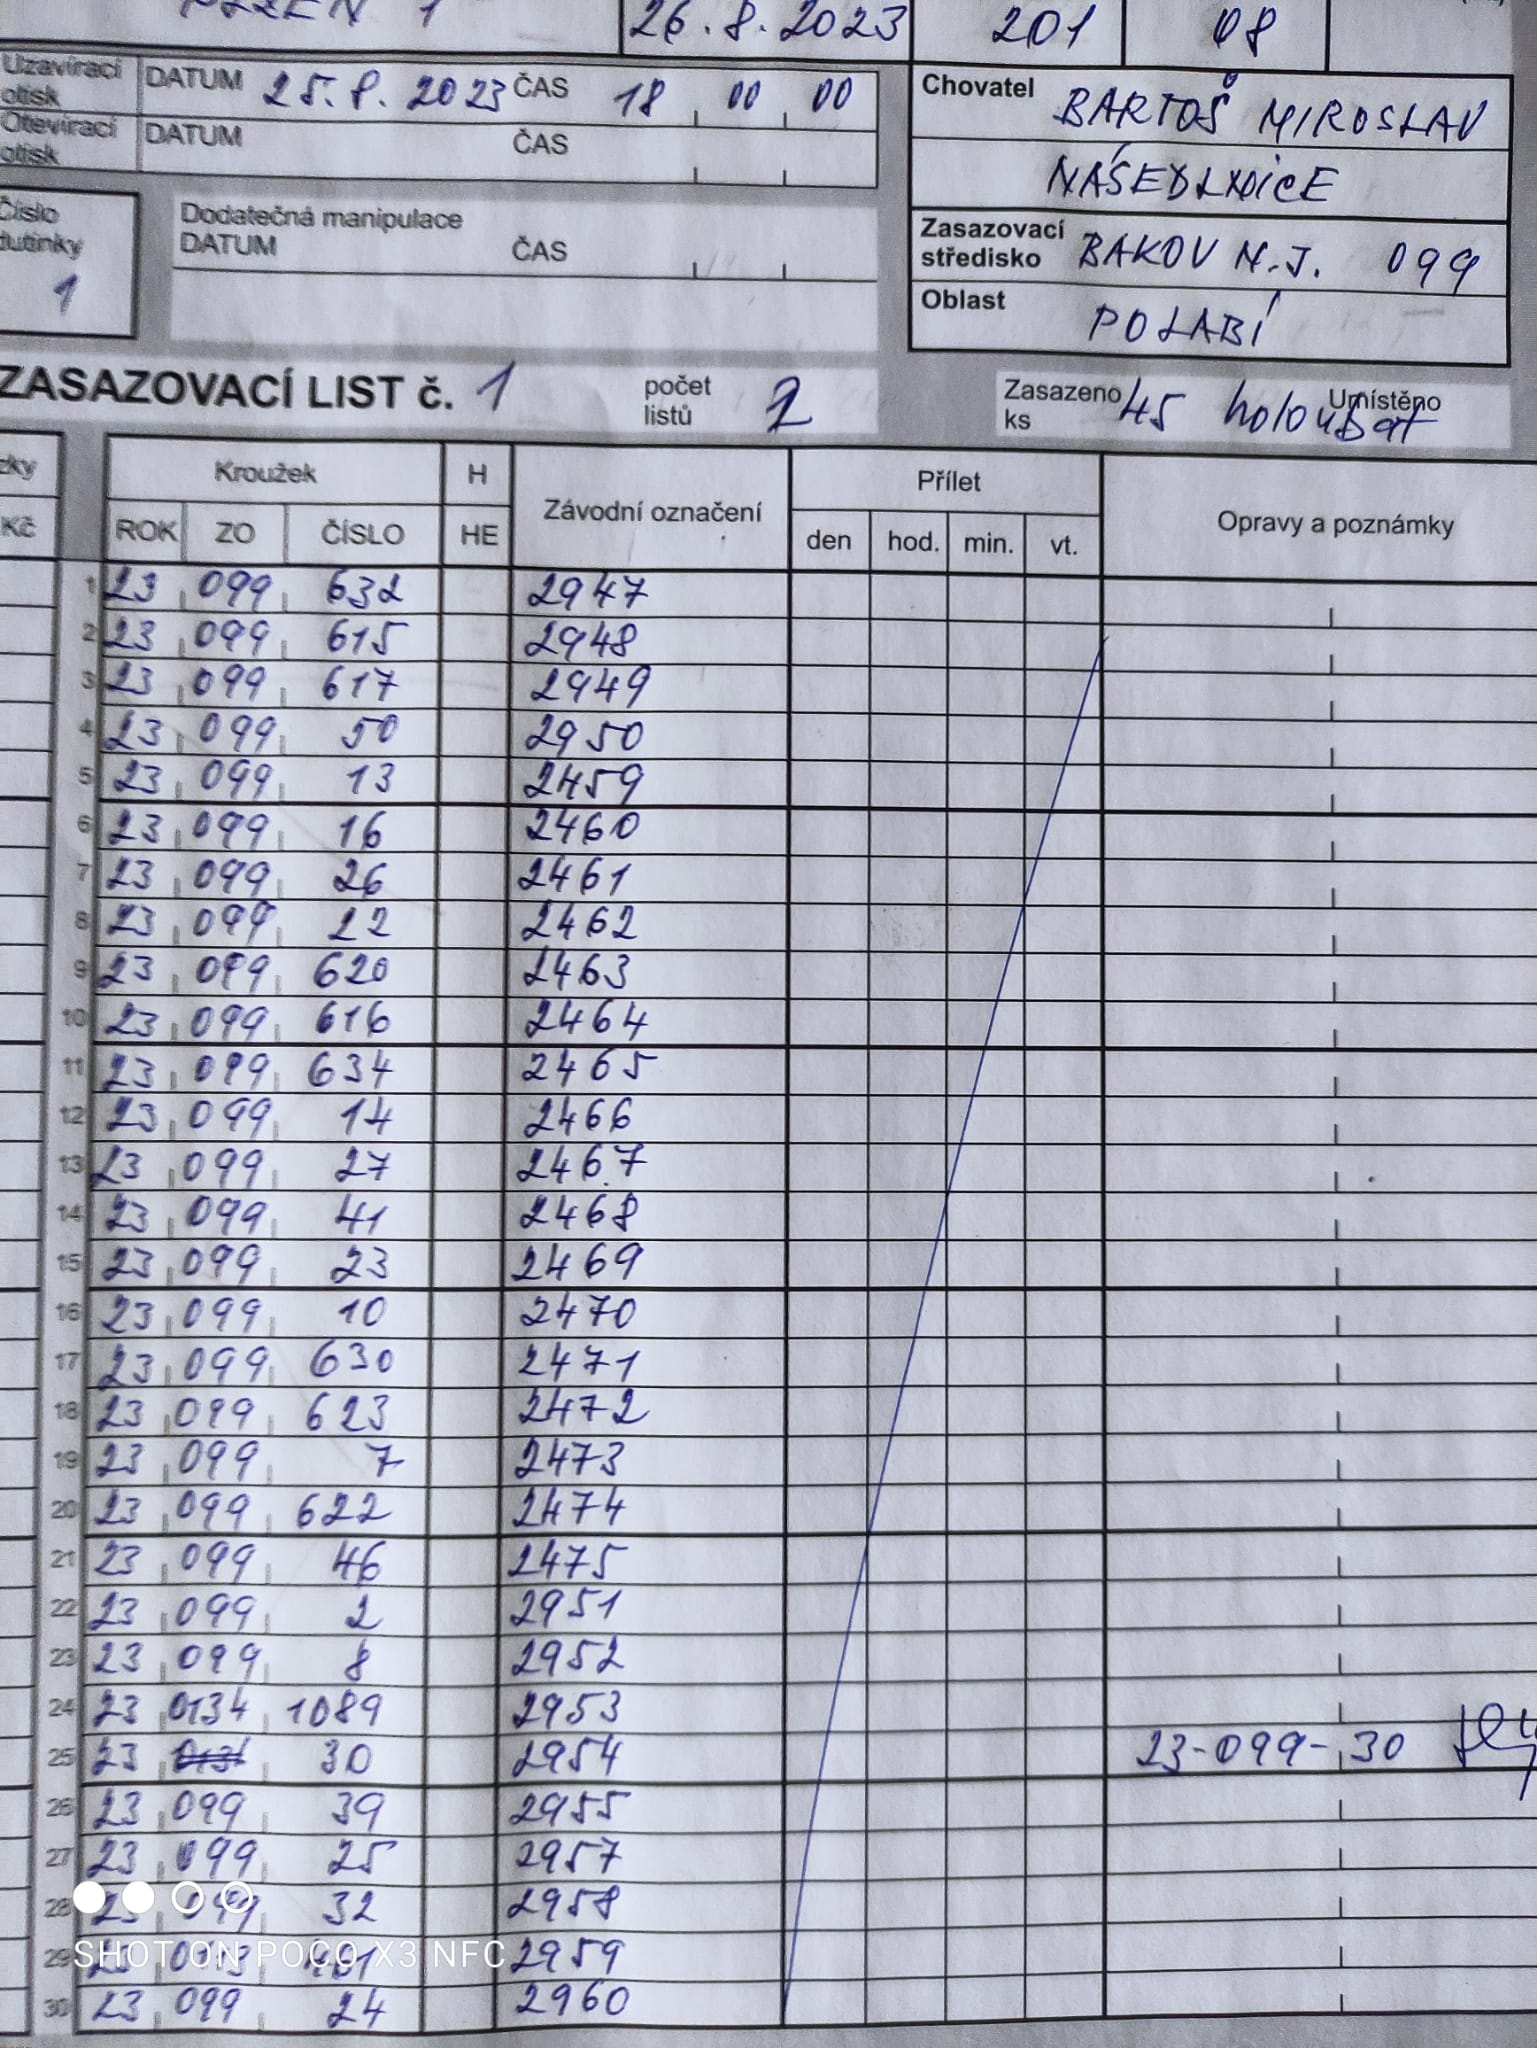 PLZEŇ 1 26.8.2023 201 08
Uzavírací otisk DATUM 25.8.2023 ČAS 18 00 00
Otevírací otisk DATUM ČAS
Chovatel BARTOŠ MIROSLAV
NÁSEDLNICE
Číslo dutinky 1
Dodatečná manipulace
DATUM ČAS
Zasazovací středisko BAKOV N.J. 099
Oblast POLABÍ
ZASAZOVACÍ LIST č. 1 počet listů 2 Zasazeno ks 45 holoubat Umístěno
Kroužek H Závodní označení Přílet Opravy a poznámky
Kč ROK ZO ČÍSLO HE den hod. min. vt.
1 23 099 632 2947
2 23 099 615 2948
3 23 099 617 2949
4 23 099 50 2950
5 23 099 13 2459
6 23 099 16 2460
7 23 099 26 2461
8 23 099 22 2462
9 23 099 620 2463
10 23 099 616 2464
11 23 099 634 2465
12 23 099 14 2466
13 23 099 27 2467
14 23 099 41 2468
15 23 099 23 2469
16 23 099 10 2470
17 23 099 630 2471
18 23 099 623 2472
19 23 099 7 2473
20 23 099 622 2474
21 23 099 46 2475
22 23 099 2 2951
23 23 099 8 2952
24 23 0134 1089 2953
25 23 30 2954 23-099-30
26 23 099 39 2955
27 23 099 25 2957
28 23 099 32 2958
29 23 2959
SHOT ON POCO X3 NFC
30 23 099 24 2960